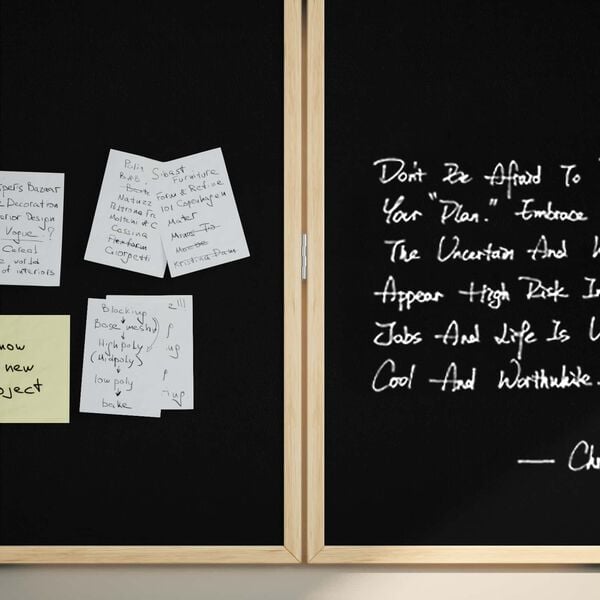 per's Bazaar
Decoration
erior Design
Vogue ?
Casaol
e world
of interiors
now
new
oject
B&B
Natuzz
Cassina
Flexform
Giorgetti
S-bast
Furniture
Form & Refine
101 Copenhagen
Mater
Kristina Dam
Blocking
Base mesh
High poly
(Midpoly)
low poly
bake
Don't Be Afraid To
Your "Plan." Embrace
The Uncertain And
Appear High Risk In
Jobs And Life Is
Cool And Worthwhile.
— Chr